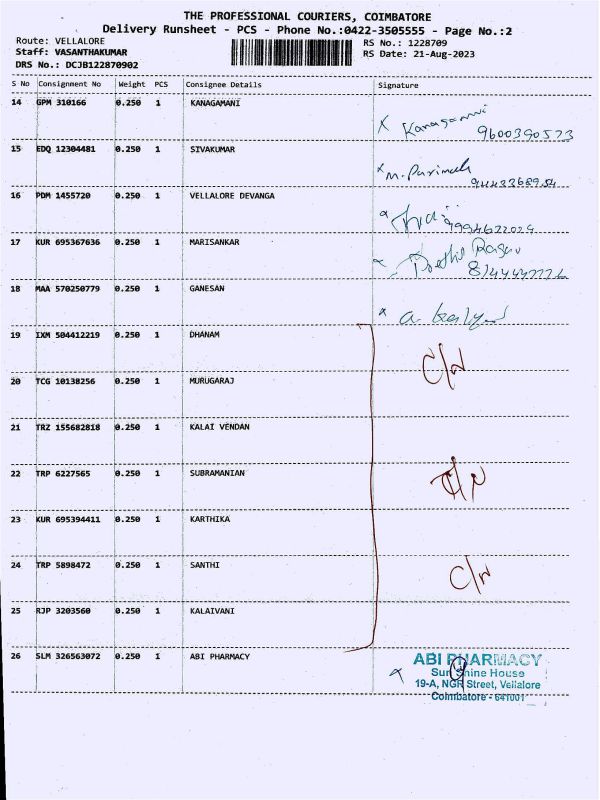 THE PROFESSIONAL COURIERS, COIMBATORE
Delivery Runsheet - PCS - Phone No.:0422-3505555 - Page No.:2
Route: VELLALORE
RS No.: 1228709
Staff: VASANTHAKUMAR
RS Date: 21-Aug-2023
DRS No.: DCJB122870902
S No Consignment No Weight PCS Consignee Details Signature
14 GPM 310166 0.250 1 KANAGAMANI
x Kanagamni
9600390573
15 EDQ 12304481 0.250 1 SIVAKUMAR
x
16 PDM 1455720 0.250 1 VELLALORE DEVANGA
17 KUR 695367636 0.250 1 MARISANKAR
18 MAA 570250779 0.250 1 GANESAN
x
19 IXM 504412219 0.250 1 DHANAM
C/N
20 TCG 10138256 0.250 1 MURUGARAJ
21 TRZ 155682818 0.250 1 KALAI VENDAN
22 TRP 6227565 0.250 1 SUBRAMANIAN
23 KUR 695394411 0.250 1 KARTHIKA
24 TRP 5898472 0.250 1 SANTHI
C/N
25 RJP 3203560 0.250 1 KALAIVANI
26 SLM 326563072 0.250 1 ABI PHARMACY
ABI PHARMACY
x Sun Shine House
19-A, NGR Street, Vellalore
Coimbatore - 641001